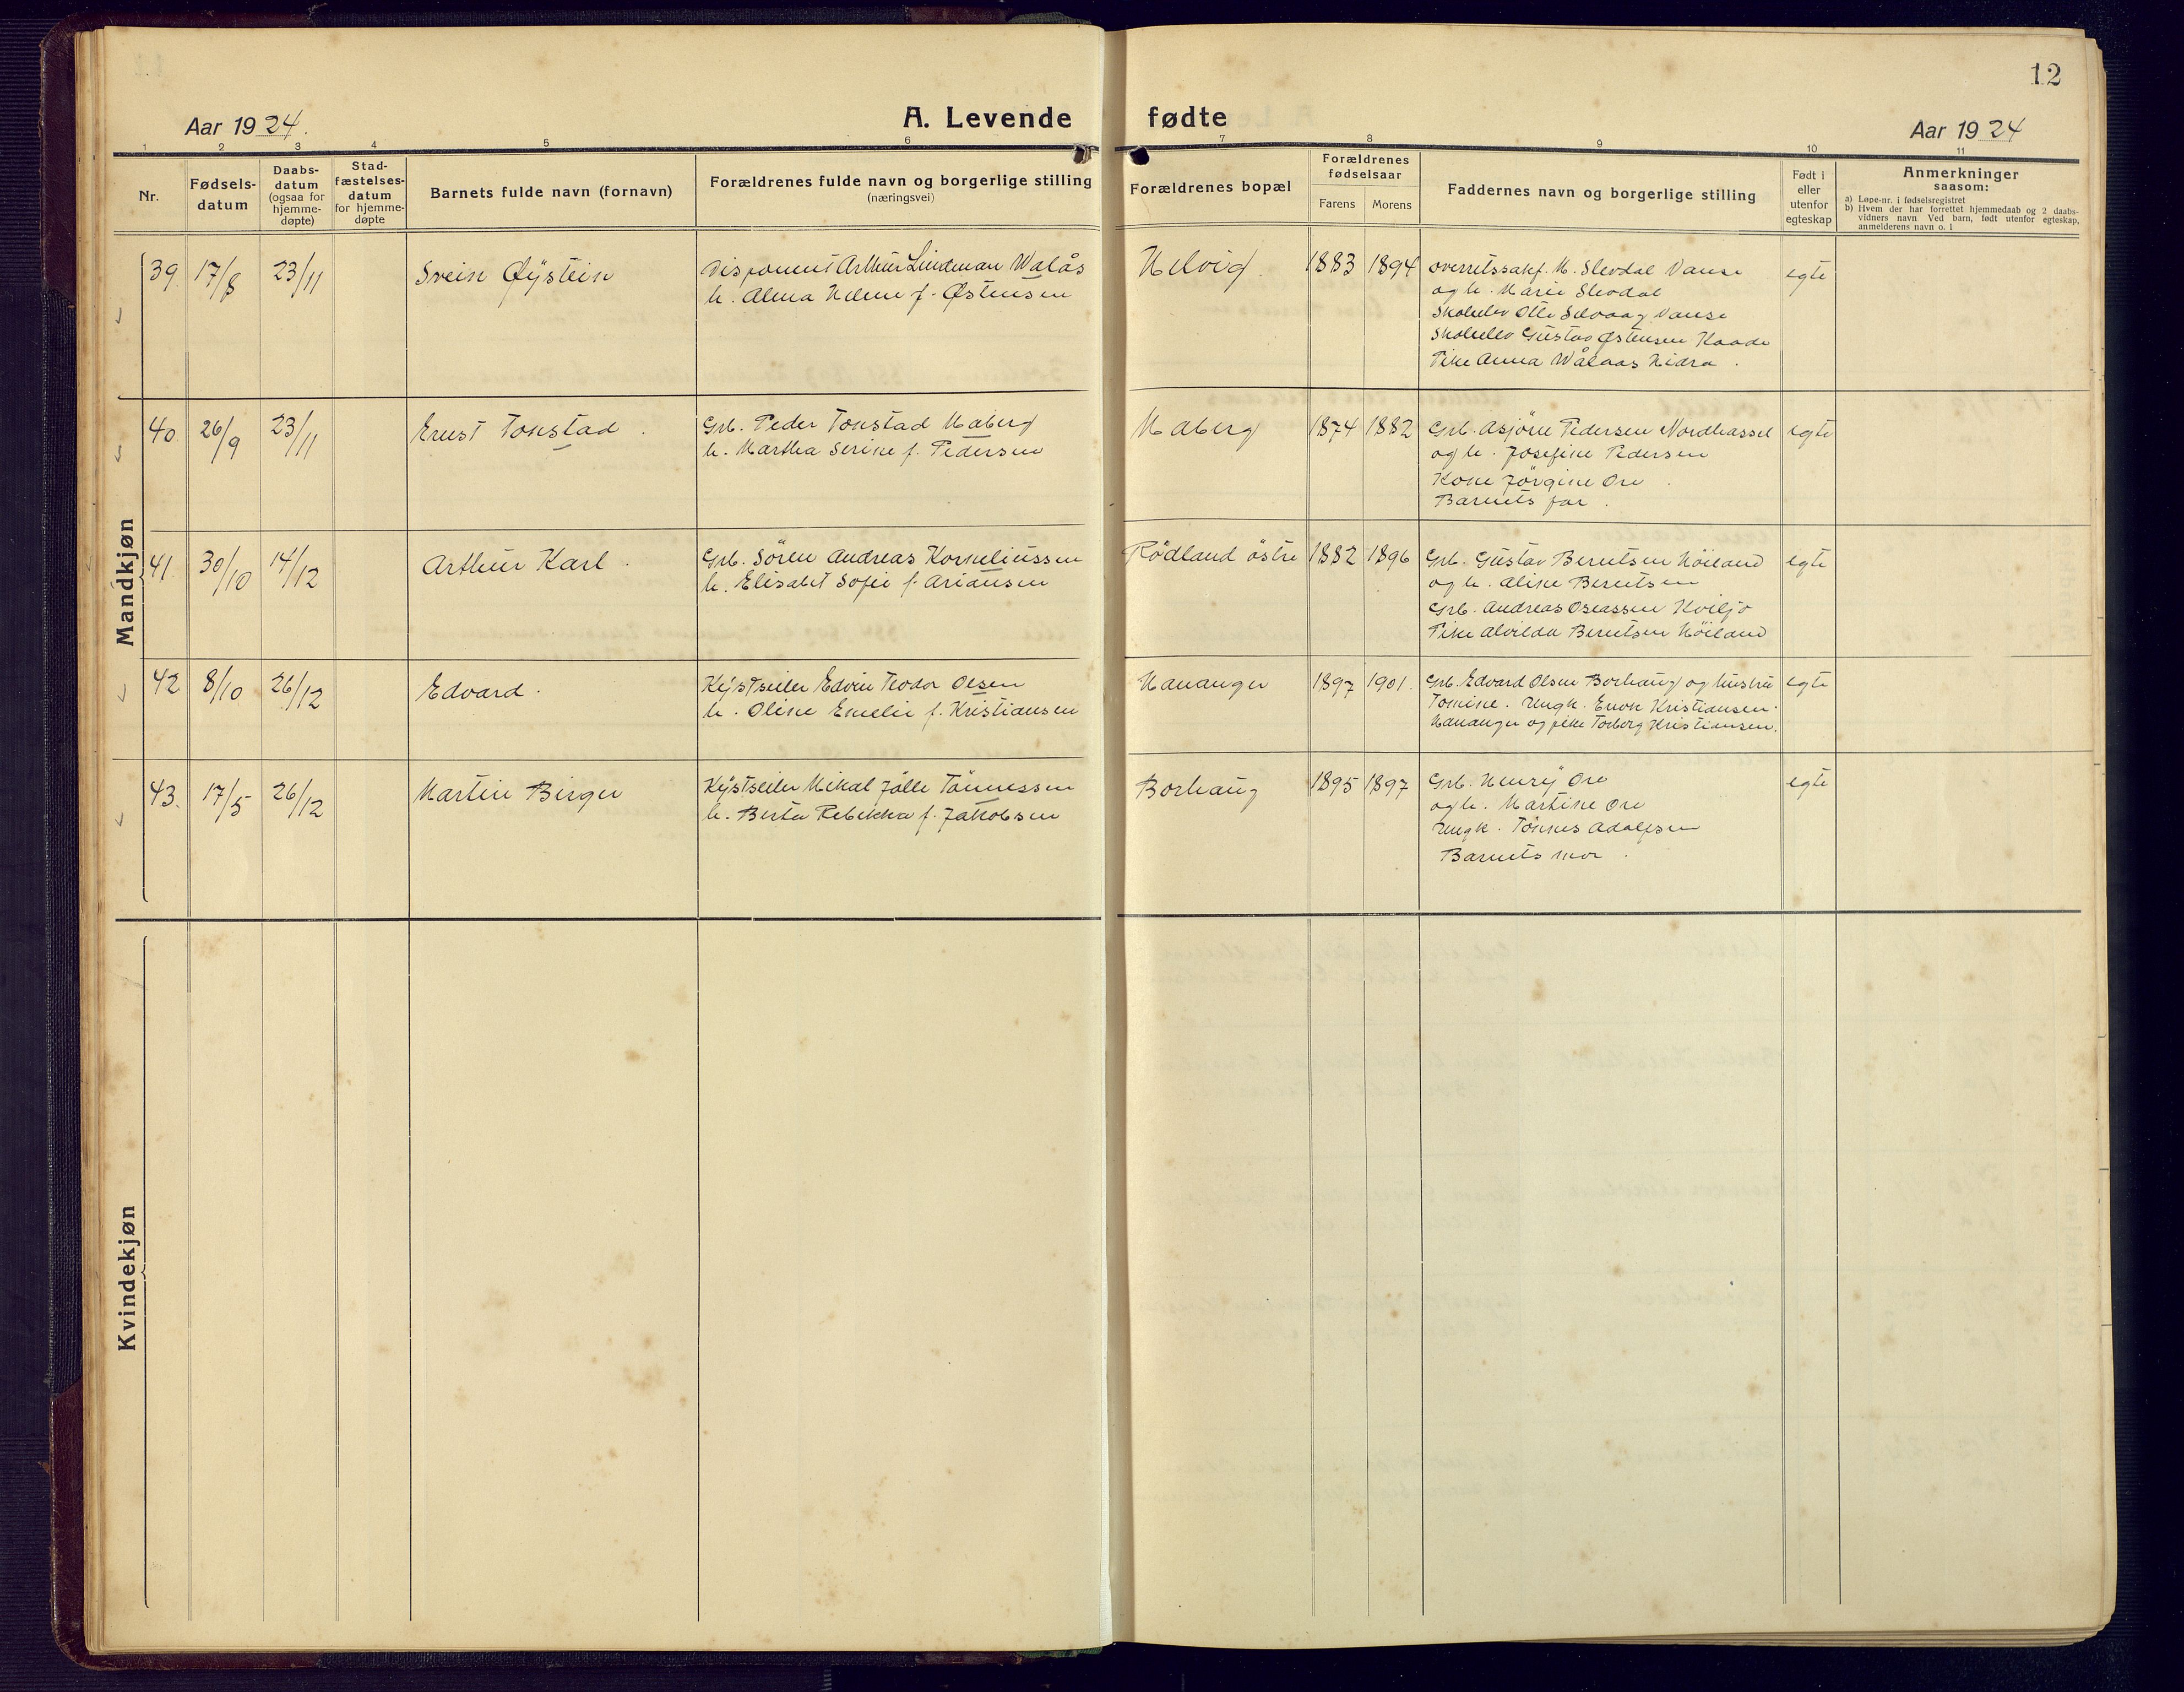 12
Aar 1924.
A. Levende fødte
Aar 1924
1 2 3 4 5 6 7 8 9 10 11
Nr.
Fødsels-
datum
Daabs-
datum
(ogsaa for
hjemme-
døpte)
Stad-
fæstelses-
datum
for hjemme-
døpte
Barnets fulde navn (fornavn)
Forældrenes fulde navn og borgerlige stilling
(næringsvei)
Forældrenes bopæl
Forældrenes
fødselsaar
Farens Morens
Faddernes navn og borgerlige stilling
Født i
eller
utenfor
egteskap
Anmerkninger
saasom:
a) Løpe-nr. i fødselsregistret
b) Hvem der har forrettet hjemmedaab og 2 daabs-
vidners navn Ved barn, født utenfor egteskap,
anmelderens navn o. l
Mandkjøn
39. 17/8 23/11
Svein Øÿstein
Disponent Arthur Lindeman Walås
h. Alma Helene f. Østensen
Helvig.
1883 1894
Overretssakf. M. Slevdal Vanse
og h. Marie Slevdal
Skoleelev Otto Selvaag Vanse
Skoleelev Gustav Østensen Kaade
Pike Anna Wålaas Hidra.
egte
40. 26/9 23/11
Ernst Tonstad.
Grb. Peder Tonstad Maberg
h. Martha Serine f. Pedersen
Maberg
1874 1882
Grb. Asjörn Pedersen Nordhassel
og h. Josefine Pedersen
Kone Jörgine Ore.
Barnets far.
egte
41. 30/10 14/12
Arthur Karl.
Grb. Sören Andreas Korneliussen
h. Elisabet Sofie f. Ariansen
Rödland östre
1882 1896
Grb. Gustav Berntsen Höiland
og h. Aline Berntsen
Grb. Andreas Oseassen Kviljo
Pike Alvilda Berntsen Höiland
egte
42 8/10 26/12
Edvard.
Kÿstseiler Edvin Teodor Olsen
h. Oline Emelie f. Kristiansen
Hananger
1897 1901.
Grb. Edvard Olsen Borhaug og hustru
Tomine. Ungk. Enok Kristiansen
Hananger og pike Torborg Kristiansen.
egte
43. 17/5 26/12
Martin Birger
Kÿstseiler Mikal Jölle Tönnessen
h. Berta Rebekka f. Jakobsen
Borhaug
1895 1897
Grb. Henrÿ Ore
og h. Martine Ore
Ungk. Tönnes Adolfsen
Barnets mor.
egte
Kvindekjøn